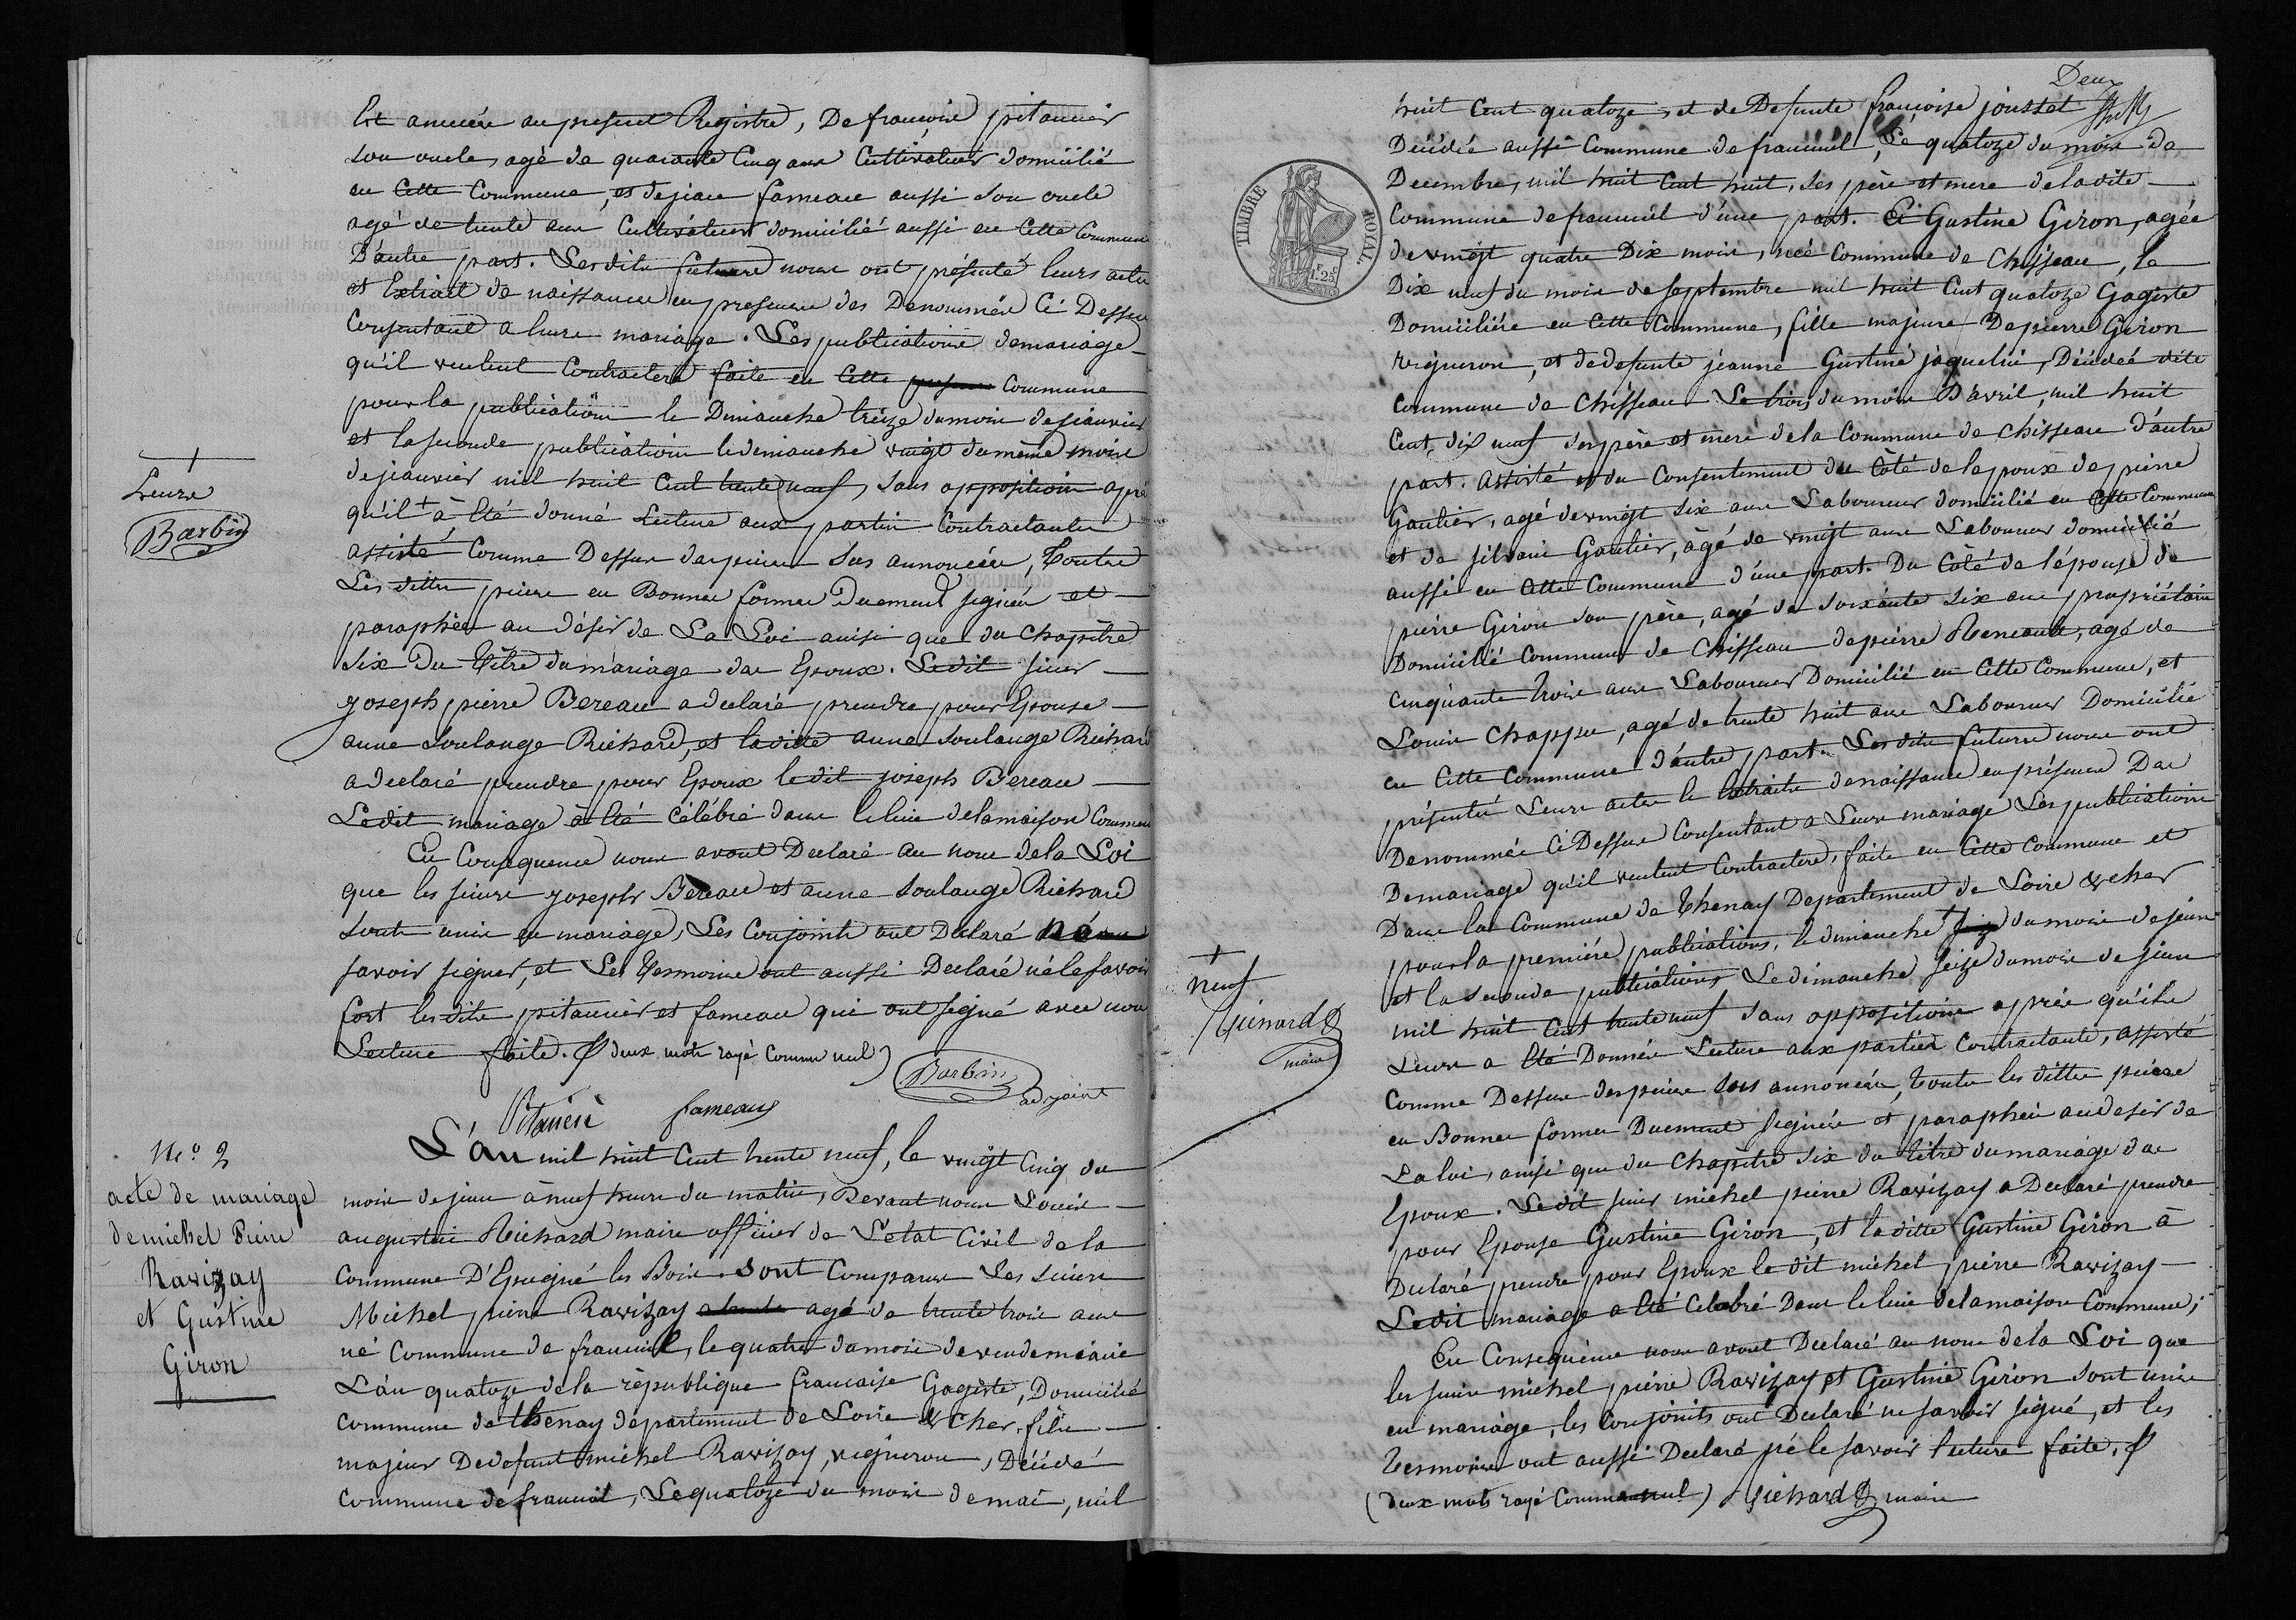 Est annexée au present Registre, De francoise pitancier
son oncle, agé de quarante Cinq ans Cultivateur domicilié
en Cette Commune, et de jean fameau aussi Son oncle
agé de trente ans Cultivateur domicilié aussi en Cette Commune
D'autre part. Lesdits futures nous ont présenté leurs actes
et Extrait de naissances en presence des Denommés Ci Dessus
Consentant a leurs mariage. Les publications de mariage
qu'il veulent Contracters faite en Cette presente Commune
pour la publication le Dimanche treize du mois de janvier
et la seconde publication le dimanche vingt du même mois
de janvier mil huit Cent trente neuf, Sans opposition après
qu'il + à été donné Lecture aux parties Contractantes
assisté Comme Dessus des pieces Sus annoncées, Toutes
Les dittes pieces en Bonnes formes Duement signées et
paraphées au désir de La Loi ainsi que du Chapitre
Six Du Titre du mariage des Epoux. Ledit sieur
joseph pierre Bereau a declaré prendre pour Epouse
anne Soulange Richard, et ladite anne Soulange Richard
a declaré prendre pour Epoux le dit joseph Bereau
Ledit mariage à été Célébré dans le lieu de la maison Commune
En Consequence nous avont Declaré au nom de la Loi
que les sieurs joseph Bereau et anne Soulange Richard
Sont unis en mariage, Les Conjoints ont Declaré né
savoir signer, et Les Tesmoins ont aussi Declaré né le savoir
fort les dits pitancier et fameau qui ont signé avec nous
Lecture faite. deux mots rayé Comme nul)
Barbin
adjoint
Pitancié fameau
+
Leurs
Barbin
No 2
acte de mariage
de michel Pierre
Ravizay
et Gustine
Giron
L'an mil huit Cent trente neuf, le vingt Cinq du
mois de juin à neuf heures du matin, Devant nous Louis
augustin Richard maire officier de L'etat Civil de la
Commune D'Epeigné les Bois. Sont Comparus Les Sieurs
Michel pierre Ravizay agé de trente trois ans
né Commune de francueil, le quatre du mois de vendemiaire
L'an quatoze de la république francaise Gagiste, Domicilié
Commune de thenay departement de Loire & Cher, fils
majeur De defunt michel Ravizay, vigneron, Décédé
Commune de francueil, Le quatoze du mois de mai, mil
Deux
huit Cent quatoze, et de Defunte françoise joustet
Décédée aussi Commune de francueil, Le quatoze du mois de
Decembre, mil huit Cent huit, Ses père et mere de la dite
Commune de francueil d'une part. Et Gustine Giron, agée
de vingt quatre Dix mois, née Commune de Chisseau, le
Dix neuf du mois de septembre mil huit Cent quatoze Gagiste
Domiciliée en Cette Commune, fille majeure De pierre Giron
vigneron, et de defunte jeanne Gustine jaquelin, Décédée dite
Commune de Chisseau Le trois du mois D'avril, mil huit
Cent dix neuf Ses père et mere de la Commune de Chisseau d'autre
part. assisté et du Consentement du Côté de l'epoux de pierre
Gaulier, agé de vingt six ans Laboureur domicilié en Cette Commune
et de silvain Gaulier, âgé de vingt ans Laboureur domicilié
aussi en Cette Commune d'une part. Du Côté de l'épouse de
pierre Giron son père, agé de soixante six ans propriétaire
Domicilié Commune de Chisseau de pierre Reneault, agé de
Cinquante trois ans Laboureur Domicilié en Cette Commune, et
Louis Chappu, agé de trente huit ans Laboureur Domicilié
en Cette Commune d'autre part. Les dits futures nous ont
présenté Leurs actes le Extraits de naissance en présence Des
Denommés Ci Dessus Consentant a Leurs mariage Les publications
De mariage qu'il veulent Contracters, faite en Cette Commune et
Dans la Commune de Thenay Departement de Loire & cher
pour la première publications, le dimanche + du mois de juin
et la seconde publications Le dimanche seize du mois de juin
mil huit Cent trente neuf Sans oppositions après qu'ils
Leurs a été Donnée Lecture aux parties Contractante, assisté
Comme Dessus des pieces Sus annoncées, toutes les dittes pieces
en Bonnes formes Duement signées et paraphées au desir de
La loi, ainsi que du Chapitre Six du titre du mariage des
Epoux. Ledit sieur michel pierre Ravizay a Declaré prendre
pour Epouse Gustine Giron, et la ditte Gustine Giron à
Declaré prendre pour Epoux le dit michel pierre Ravizay
Le dit mariage a été Celebré Dans le lieu de la maison Commune,
En Consequence nous avont Declaré au nom de la Loi que
les sieurs michel pierre Ravizay et Gustine Giron sont unis
en mariage, les Conjoints ont Declaré ne savoir signé, et les
Tesmoins ont aussi Declaré né le savoir lecture faite.
(deux mots rayé Comme nul) Richard maire
TIMBRE ROYAL
1F 25C
+
neuf
Richard
maire